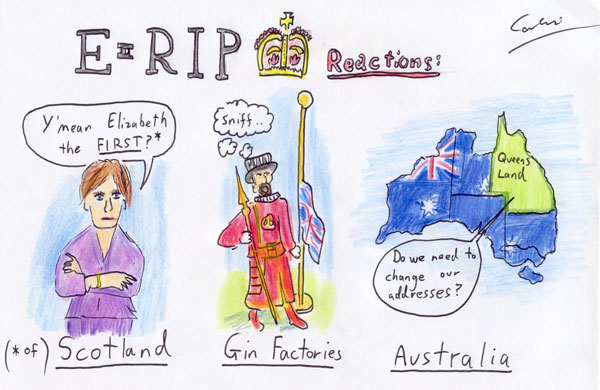 E II R I P
Reactions:
Y'mean Elizabeth
the FIRST?*
Sniff..
Queens
Land
Do we need to
change our
addresses?
(*of) Scotland
Gin Factories
Australia